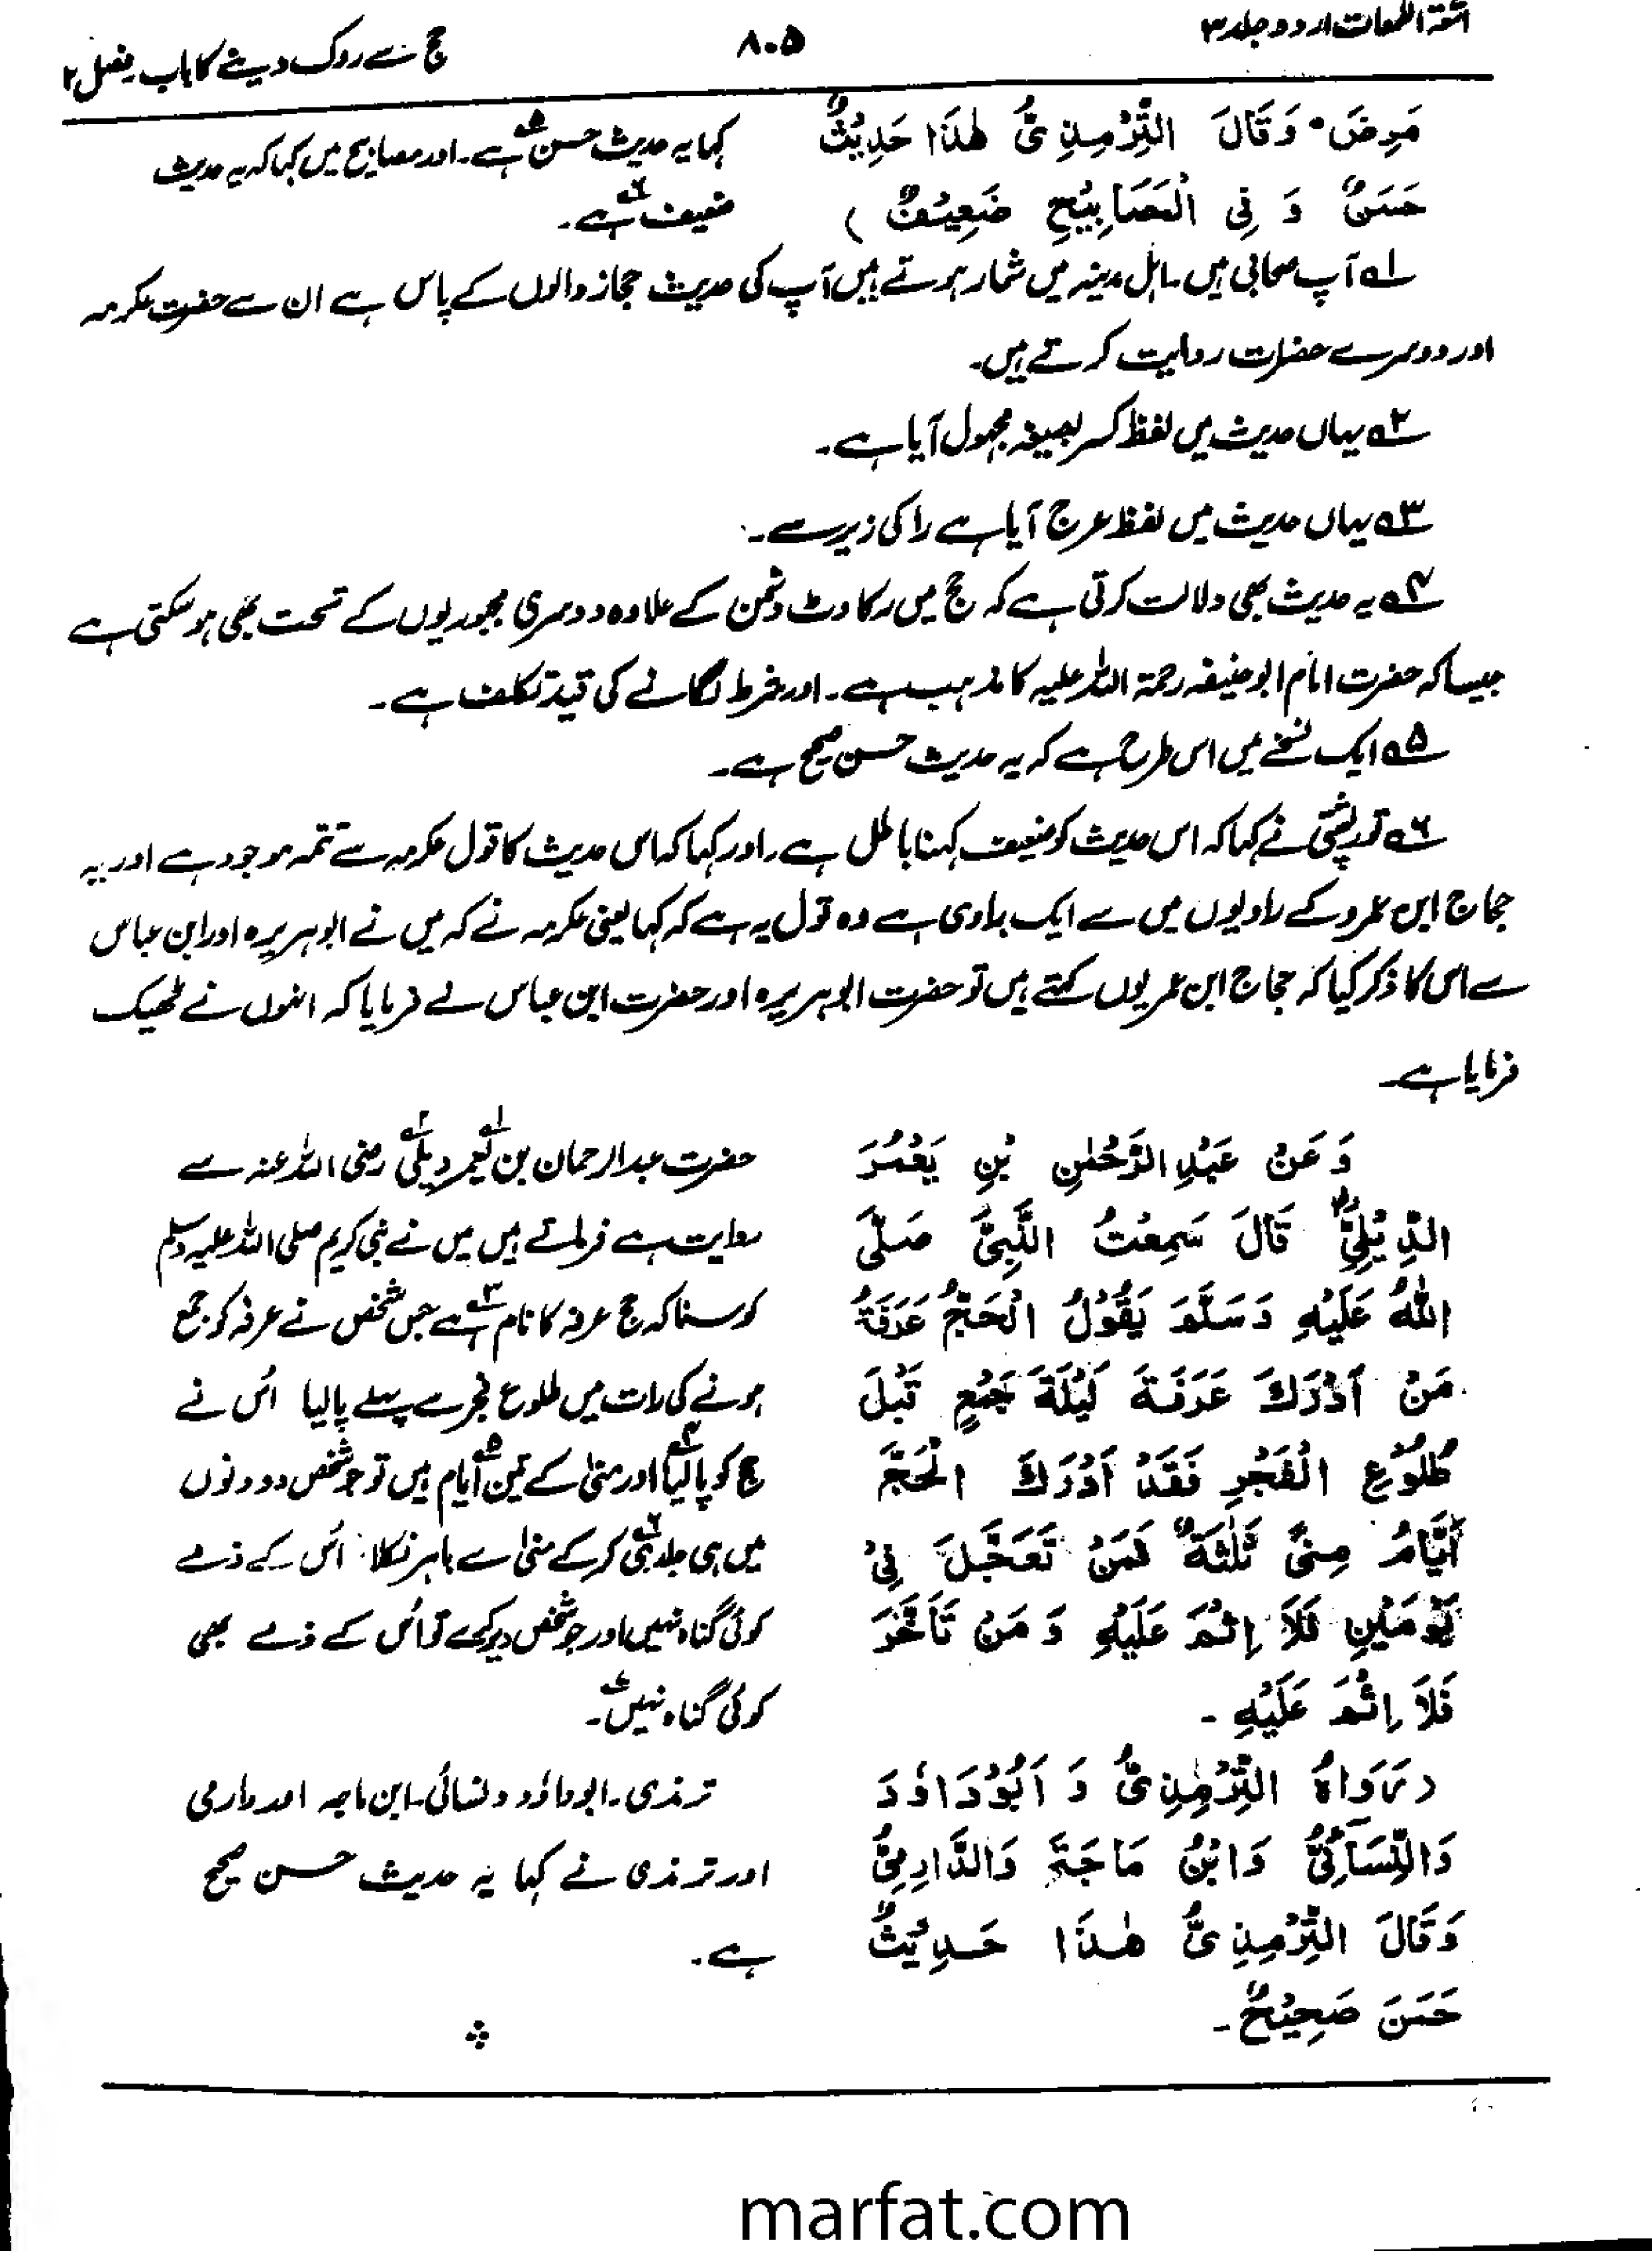 اشعۃ اللمعات اردو جلد ۳
۸۰۵
حج سے روک دینے کا باب فصل ۲
مَرِضَ۔ وَقَالَ التِّرْمِذِیُّ هٰذَا حَدِیْثٌ
حَسَنٌ وَ فِی الْمَصَابِیْحِ ضَعِیْفٌ)
کہا یہ حدیث حسن ۵ ہے۔ اور مصابیح میں کہا کہ یہ حدیث
ضعیف ۶ ہے۔
۱ آپ صحابی ہیں۔ اہل مدینہ میں شمار ہوتے ہیں آپ کی حدیث حجاز والوں کے پاس ہے ان سے حضرت عکرمہ
اور دوسرے حضرات روایت کرتے ہیں۔
۲ یہاں حدیث میں لفظ کسر بصیغہ مجہول آیا ہے۔
۳ یہاں حدیث میں لفظ عرج آیا ہے را کی زیر سے۔
۴ یہ حدیث بھی دلالت کرتی ہے کہ حج میں رکاوٹ دشمن کے علاوہ دوسری مجبوریوں کے تحت بھی ہو سکتی ہے
جیسا کہ حضرت امام ابو حنیفہ رحمۃ اللہ علیہ کا مذہب ہے۔ اور شرط لگانے کی قید تکلف ہے۔
۵ ایک نسخے میں اس طرح ہے کہ یہ حدیث حسن صحیح ہے۔
۶ تورپشتی نے کہا کہ اس حدیث کو ضعیف کہنا باطل ہے۔ اور کہا کہ اس حدیث کا قول عکرمہ سے تتمہ موجود ہے اور یہ
حجاج ابن عمرو کے راویوں میں سے ایک راوی ہے وہ قول یہ ہے کہ کہا یعنی عکرمہ نے کہ میں نے ابو ہریرہ اور ابن عباس
سے اس کا ذکر کیا کہ حجاج ابن عمر یوں کہتے ہیں تو حضرت ابو ہریرہ اور حضرت ابن عباس نے فرمایا کہ انہوں نے ٹھیک
فرمایا ہے۔
وَعَنْ عَبْدِ الرَّحْمٰنِ بْنِ یَعْمُرَ
الدِّیْلِیِّ قَالَ سَمِعْتُ النَّبِیَّ صَلَّی
اللّٰهُ عَلَیْهِ وَسَلَّمَ یَقُوْلُ الْحَجُّ عَرَفَةُ
مَنْ اَدْرَكَ عَرَفَةَ لَیْلَةَ جَمْعٍ قَبْلَ
طُلُوْعِ الْفَجْرِ فَقَدْ اَدْرَكَ الْحَجَّ
اَیَّامُ مِنًی ثَلٰثَةٌ فَمَنْ تَعَجَّلَ فِیْ
یَوْمَیْنِ فَلَا اِثْمَ عَلَیْهِ وَ مَنْ تَاَخَّرَ
فَلَا اِثْمَ عَلَیْهِ ۔
(رَوَاهُ التِّرْمِذِیُّ وَ اَبُوْدَاوٗدَ
وَالنِّسَآئِیُّ وَابْنُ مَاجَةَ وَالدَّارِمِیُّ
وَقَالَ التِّرْمِذِیُّ هٰذَا حَدِیْثٌ
حَسَنَ صَحِیْحٌ۔
حضرت عبدالرحمان بن یعمر ۱ دیلی ۲ رضی اللہ عنہ سے
روایت ہے فرماتے ہیں میں نے نبی کریم صلی اللہ علیہ وسلم
کو سنا کہ حج عرفہ کا نام ۳ ہے جس شخص نے عرفہ کو جمع
ہونے کی رات میں طلوع فجر سے پہلے پا لیا اُس نے
حج کو پا لیا ۴ اور منیٰ کے تین ۵ ایام ہیں تو جو شخص دو دنوں
میں ہی جلدی ۶ کر کے منیٰ سے باہر نکلا۔ اُس کے ذمے
کوئی گناہ نہیں اور جو شخص دیر کرے تو اُس کے ذمے بھی
کوئی گناہ نہیں ۷۔
ترمذی۔ ابوداؤد و نسائی۔ ابن ماجہ اور دارمی
اور ترمذی نے کہا یہ حدیث حسن صحیح
ہے۔
marfat.com